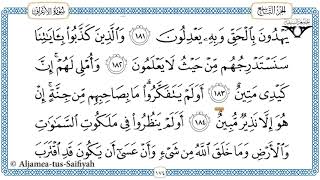 سورة الأعراف الجزء التاسع
يَهْدُونَ بِالْحَقِّ وَبِهِ يَعْدِلُونَ ١٨١ وَالَّذِينَ كَذَّبُوا بِآيَاتِنَا
سَنَسْتَدْرِجُهُم مِّنْ حَيْثُ لَا يَعْلَمُونَ ١٨٢ وَأُمْلِي لَهُمْ إِنَّ
كَيْدِي مَتِينٌ ١٨٣ أَوَلَمْ يَتَفَكَّرُوا مَا بِصَاحِبِهِم مِّن جِنَّةٍ إِنْ
هُوَ إِلَّا نَذِيرٌ مُّبِينٌ ١٨٤ أَوَلَمْ يَنظُرُوا فِي مَلَكُوتِ السَّمَاوَاتِ
وَالْأَرْضِ وَمَا خَلَقَ اللَّهُ مِن شَيْءٍ وَأَنْ عَسَىٰ أَن يَكُونَ قَدِ اقْتَرَبَ
© Aljamea-tus-Saifiyah
١٧٤